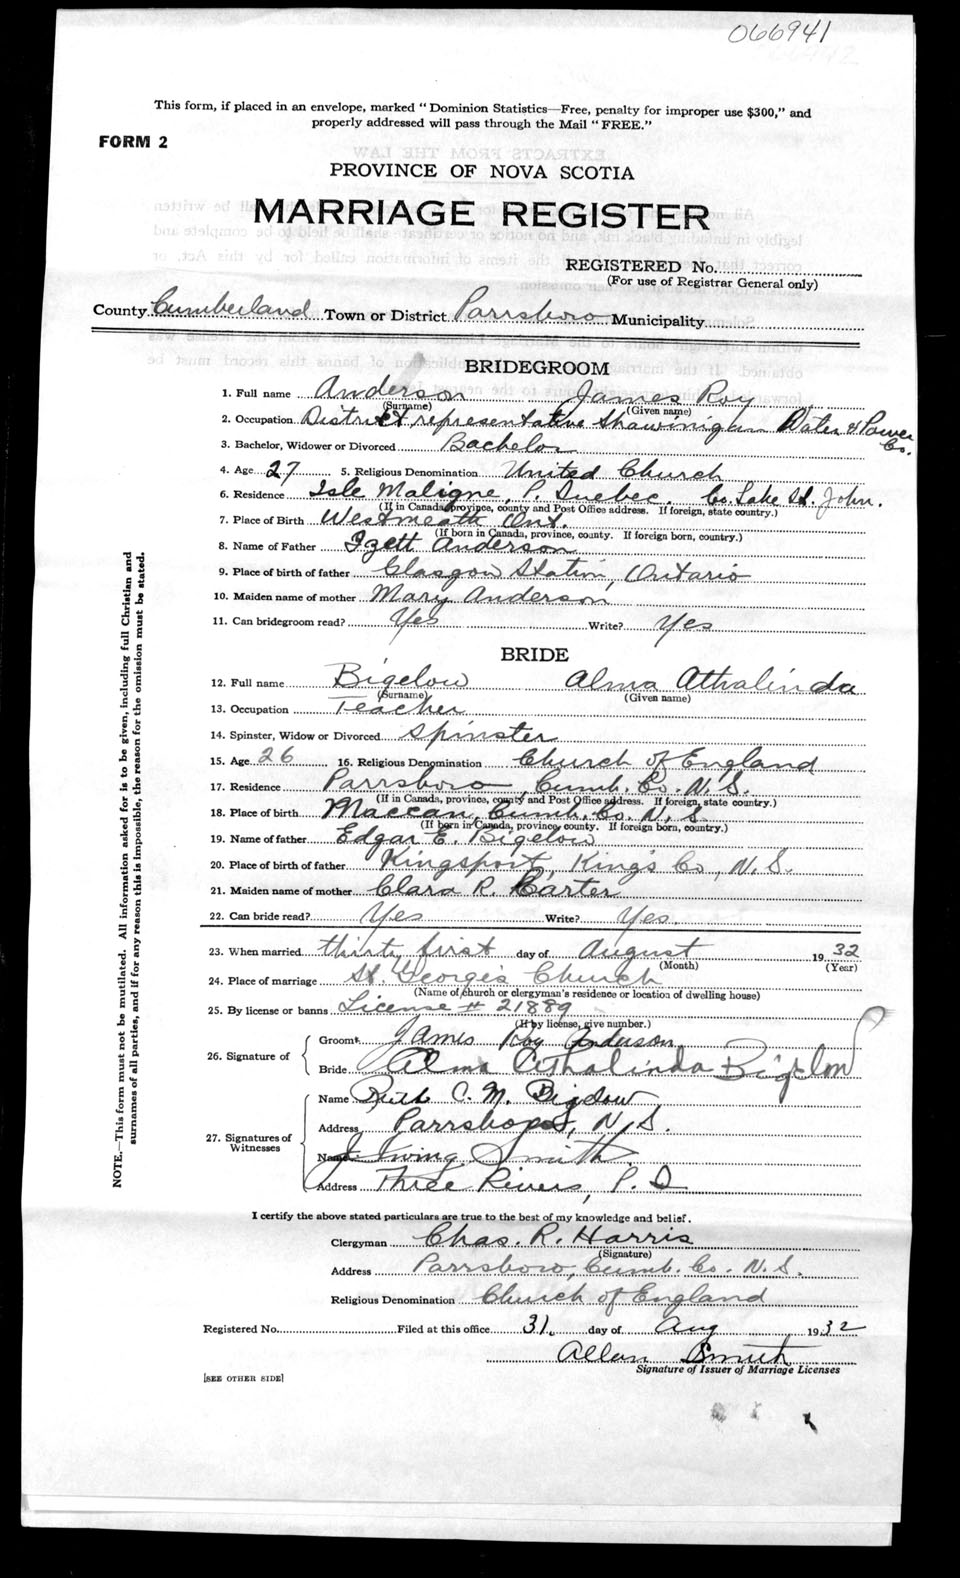 066941
This form, if placed in an envelope, marked "Dominion Statistics—Free, penalty for improper use $300," and
properly addressed will pass through the Mail "FREE."
FORM 2
PROVINCE OF NOVA SCOTIA
MARRIAGE REGISTER
REGISTERED No.
(For use of Registrar General only)
County Cumberland Town or District Parrsboro Municipality
BRIDEGROOM
1. Full name Anderson James Roy
(Surname) (Given name)
2. Occupation District representative Shawinigan Water & Power Co.
3. Bachelor, Widower or Divorced Bachelor
4. Age 27 5. Religious Denomination United Church
6. Residence Isle Maligne, P. Quebec. Co. Lake St. John.
(If in Canada, province, county and Post Office address. If foreign, state country.)
7. Place of Birth Westmeath Ont.
(If born in Canada, province, county. If foreign born, country.)
8. Name of Father Izett Anderson
9. Place of birth of father Glasgow Station, Ontario
10. Maiden name of mother Mary Anderson
11. Can bridegroom read? Yes Write? Yes
BRIDE
12. Full name Bigelow Alma Athalinda
(Surname) (Given name)
13. Occupation Teacher
14. Spinster, Widow or Divorced Spinster
15. Age 26 16. Religious Denomination Church of England
17. Residence Parrsboro, Cumb. Co. N. S.
(If in Canada, province, county and Post Office address. If foreign, state country.)
18. Place of birth Maccan, Cumb. Co. N. S
(If born in Canada, province, county. If foreign born, country.)
19. Name of father Edgar E. Bigelow
20. Place of birth of father Kingsport, King's Co, N. S.
21. Maiden name of mother Clara R. Carter
22. Can bride read? Yes Write? Yes.
23. When married thirty first day of August 19 32
(Month) (Year)
24. Place of marriage St. George's Church
(Name of church or clergyman's residence or location of dwelling house)
25. By license or banns License # 21889
(If by license, give number.)
26. Signature of
Groom James Roy Anderson
Bride Alma Athalinda Bigelow
27. Signatures of Witnesses
Name Ruth C. M. Bigelow
Address Parrsboro, N. S.
Name Irving Smith
Address Three Rivers, P. Q
I certify the above stated particulars are true to the best of my knowledge and belief.
Clergyman Chas. R. Harris
(Signature)
Address Parrsboro, Cumb. Co. N. S.
Religious Denomination Church of England
Registered No. Filed at this office 31. day of Aug 19 32
Allan Smith
Signature of Issuer of Marriage Licenses
[SEE OTHER SIDE]
NOTE.—This form must not be mutilated. All information asked for is to be given, including full Christian and
surnames of all parties, and if for any reason this is impossible, the reason for the omission must be stated.